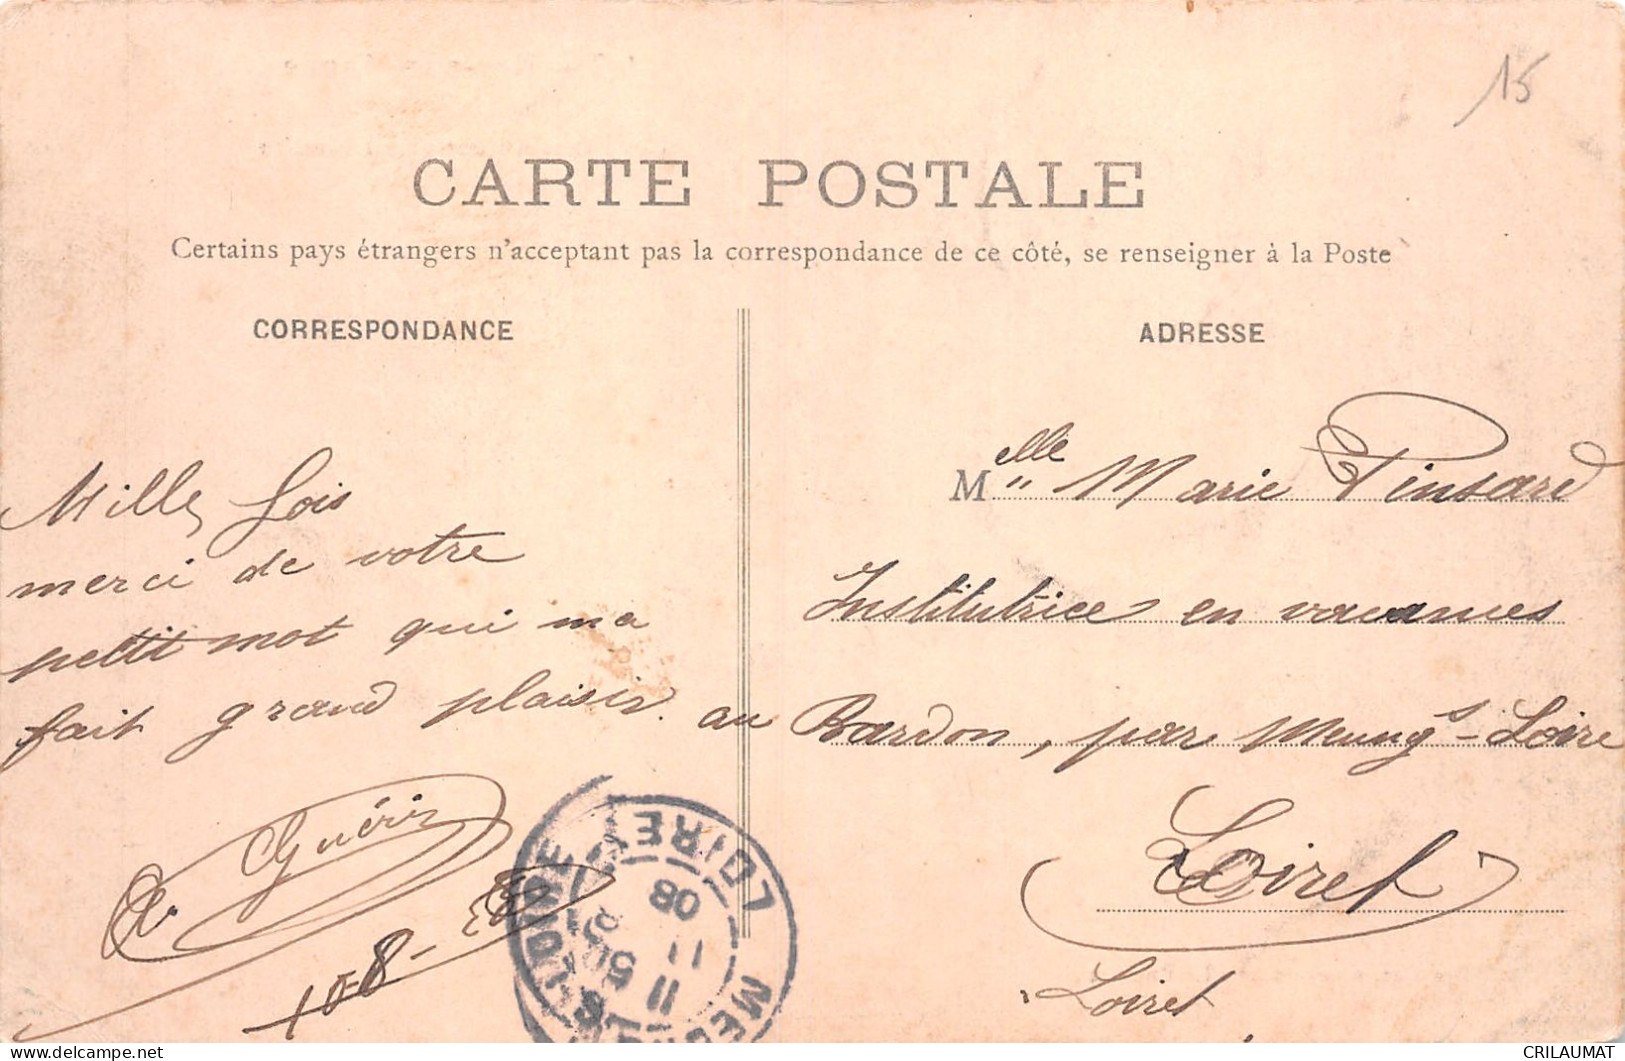 15
CARTE POSTALE
Certains pays étrangers n'acceptant pas la correspondance de ce côté, se renseigner à la Poste
CORRESPONDANCE
Mille fois
merci de votre
petit mot qui m'a
fait grand plaisir.
Guérin
ADRESSE
Melle Marie Pinsard
Institutrice en vacances
au Bardon, par Meung s - Loire
Loiret
Loiret
LOIRET
11
08
CRILAUMAT